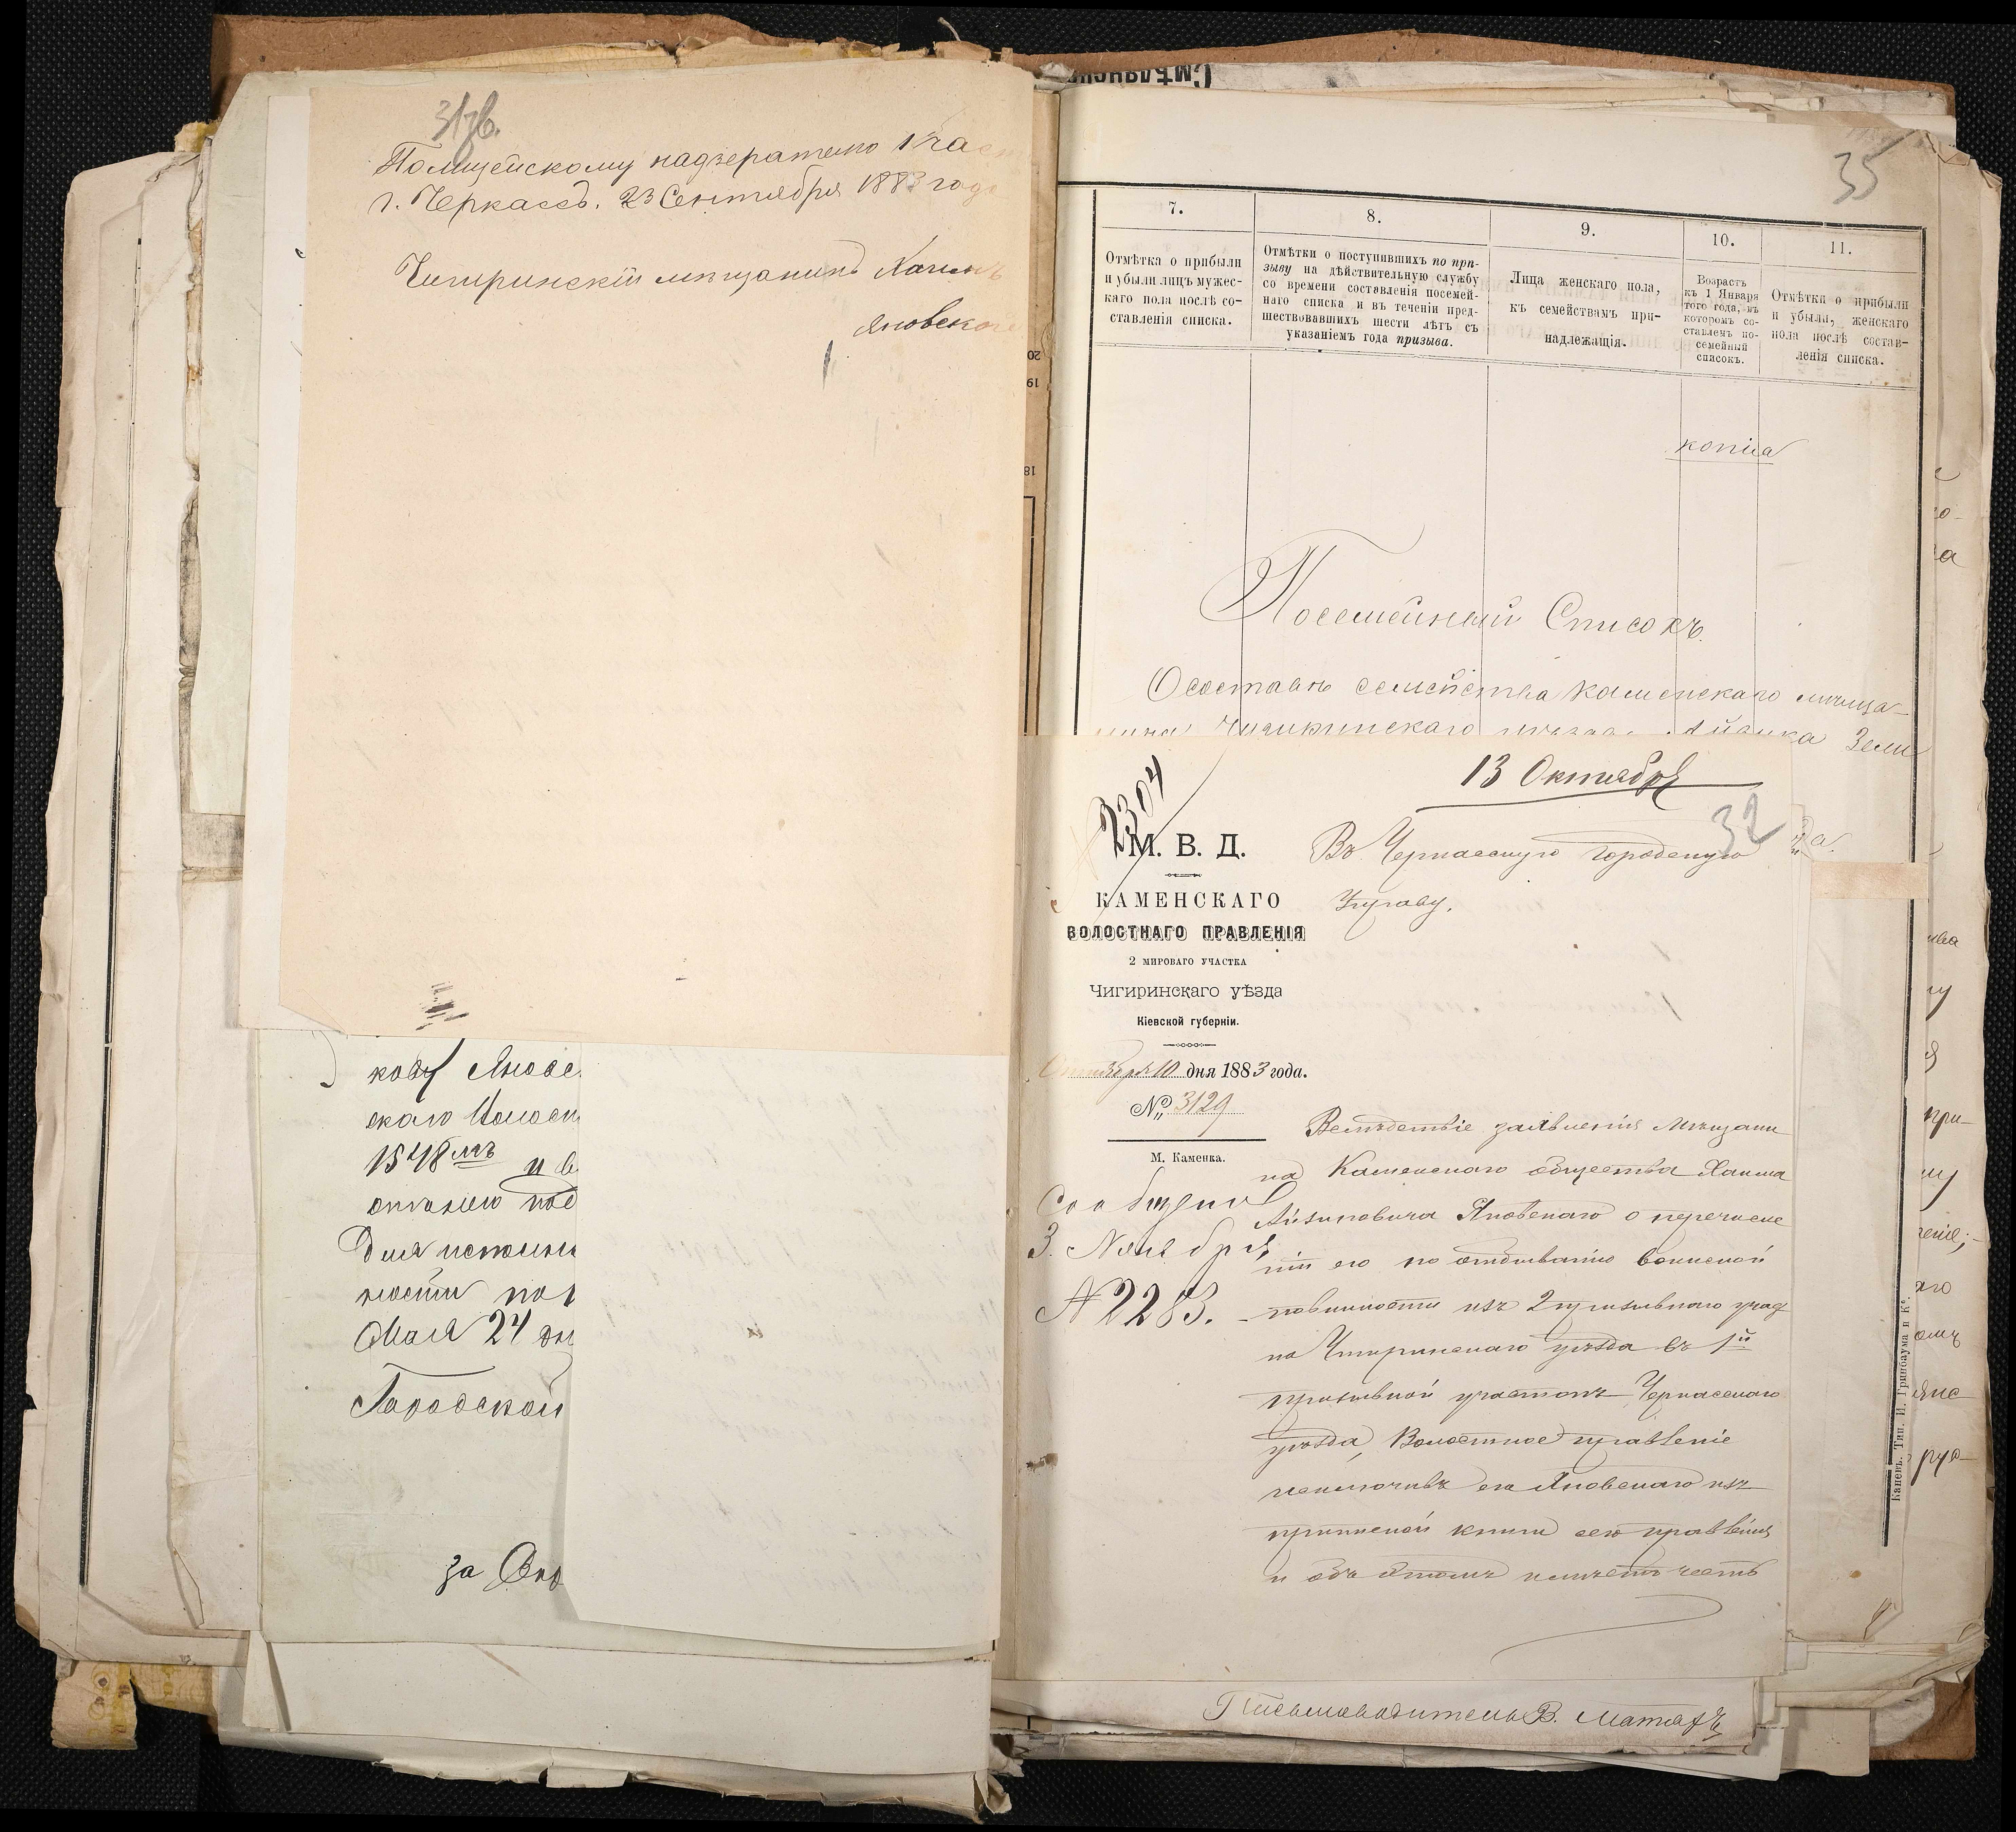 31 об.
Полицейскому надзерателю 1 час
г. Черкассъ. 23 Сентября 1883 года
Чигиринскій мѣщанинъ Хаимъ
Яновскій
кову Яновс
скаго Волостн
1548 мъ и в
отанію под
Для исполне
ности по
Мая 24 дн
Городской
за
20
19
18
Смѣлянско
35
7.
8.
9.
10.
11.
Отмѣтка о прибыли
и убыли лицъ мужес-
каго пола послѣ со-
ставленія списка.
Отмѣтки о поступившихъ по при-
зыву на дѣйствительную службу
со времени составленія посемей-
наго списка и въ теченіи пред-
шествовавшихъ шести лѣтъ съ
указаніемъ года призыва.
Лица женскаго пола,
къ семействамъ при-
надлежащія.
Возрастъ
къ 1 Января
того года, въ
которомъ со-
ставленъ по-
семейный
списокъ.
Отмѣтки о прибыли
и убыли, женскаго
пола послѣ состав-
ленія списка.
копіа
Посемейный Списокъ.
О составѣ семейства Каменскаго мѣща-
нина Чигиринскаго уѣзда Айзика Зели
13 Октября
2304
32
М. В. Д.
КАМЕНСКАГО
ВОЛОСТНАГО ПРАВЛЕНІЯ
2 МИРОВАГО УЧАСТКА
Чигиринскаго уѣзда
Кіевской губерніи.
Октября 10 дня 1883 года.
№ 3129
М. Каменка.
Сообщено
3. Ноября
№ 2283.
Въ Черкасскую городскую
Управу.
Вслѣдствіе заявленія мѣщани
на Каменскаго общества Хаима
Айзиковича Яновскаго о перечисле
ніи его по отбыванію воинской
повинности изъ 2 призывного участ
ка Чигиринскаго уѣзда въ 1й
призывной участокъ Черкасскаго
уѣзда, Волостное правленіе
исключивъ его Яновскаго изъ
приписной книги сего правленія
и объ этомъ имѣетъ честь
Письмоводитель В.
Каневъ. Тип. И. Гринбаума и К°.